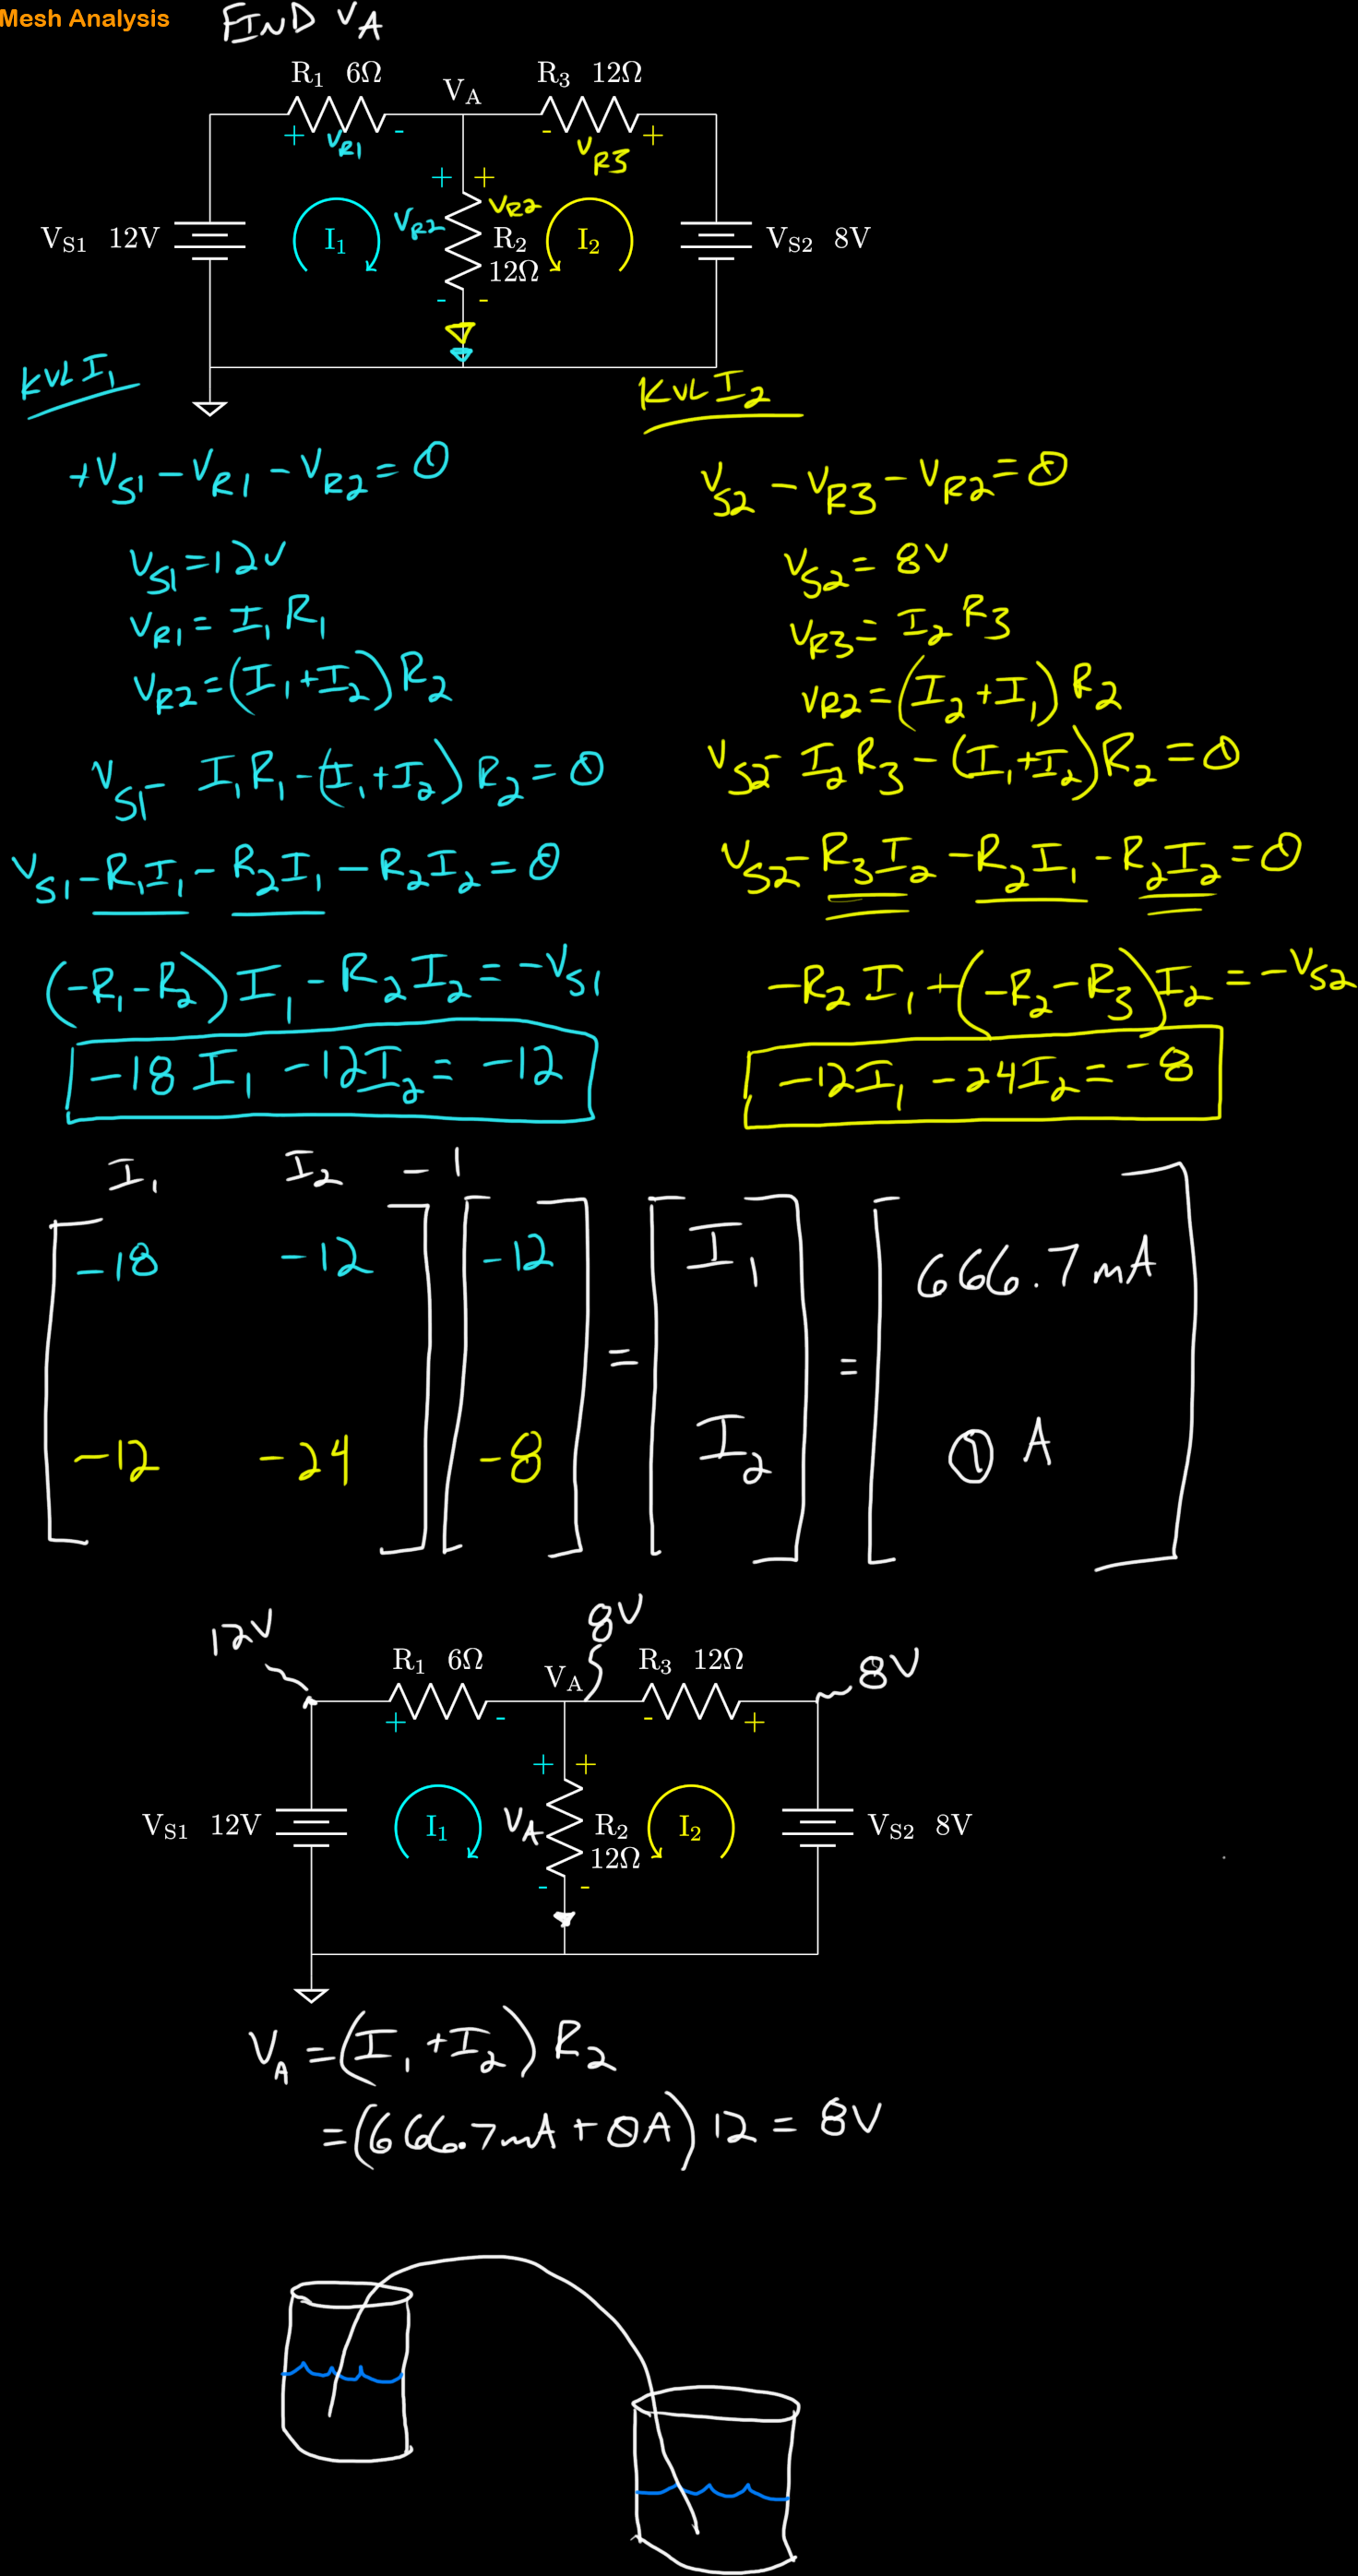 Mesh Analysis
FIND VA
R1 6Ω
VA
R3 12Ω
+ VR1 -
- VR3 +
+ +
VS1 12V
I1
VR2
VR2
R2
12Ω
I2
VS2 8V
- -
KVL I1
+VS1 - VR1 - VR2 = 0
VS1 = 12V
VR1 = I1 R1
VR2 = (I1 + I2) R2
VS1 - I1 R1 - (I1 + I2) R2 = 0
VS1 - R1I1 - R2I1 - R2I2 = 0
(-R1 - R2) I1 - R2 I2 = -VS1
-18 I1 - 12I2 = -12
KVL I2
VS2 - VR3 - VR2 = 0
VS2 = 8V
VR3 = I2 R3
VR2 = (I2 + I1) R2
VS2 - I2 R3 - (I1 + I2) R2 = 0
VS2 - R3I2 - R2I1 - R2I2 = 0
-R2 I1 + (-R2 - R3) I2 = -VS2
-12I1 - 24I2 = -8
I1 I2 -1
-18 -12 -12 I1 666.7mA
= =
-12 -24 -8 I2 0 A
12V
8V
8V
R1 6Ω
VA
R3 12Ω
+ -
- +
+ +
VS1 12V
I1
VA
R2
12Ω
I2
VS2 8V
- -
VA = (I1 + I2) R2
= (666.7mA + 0A) 12 = 8V